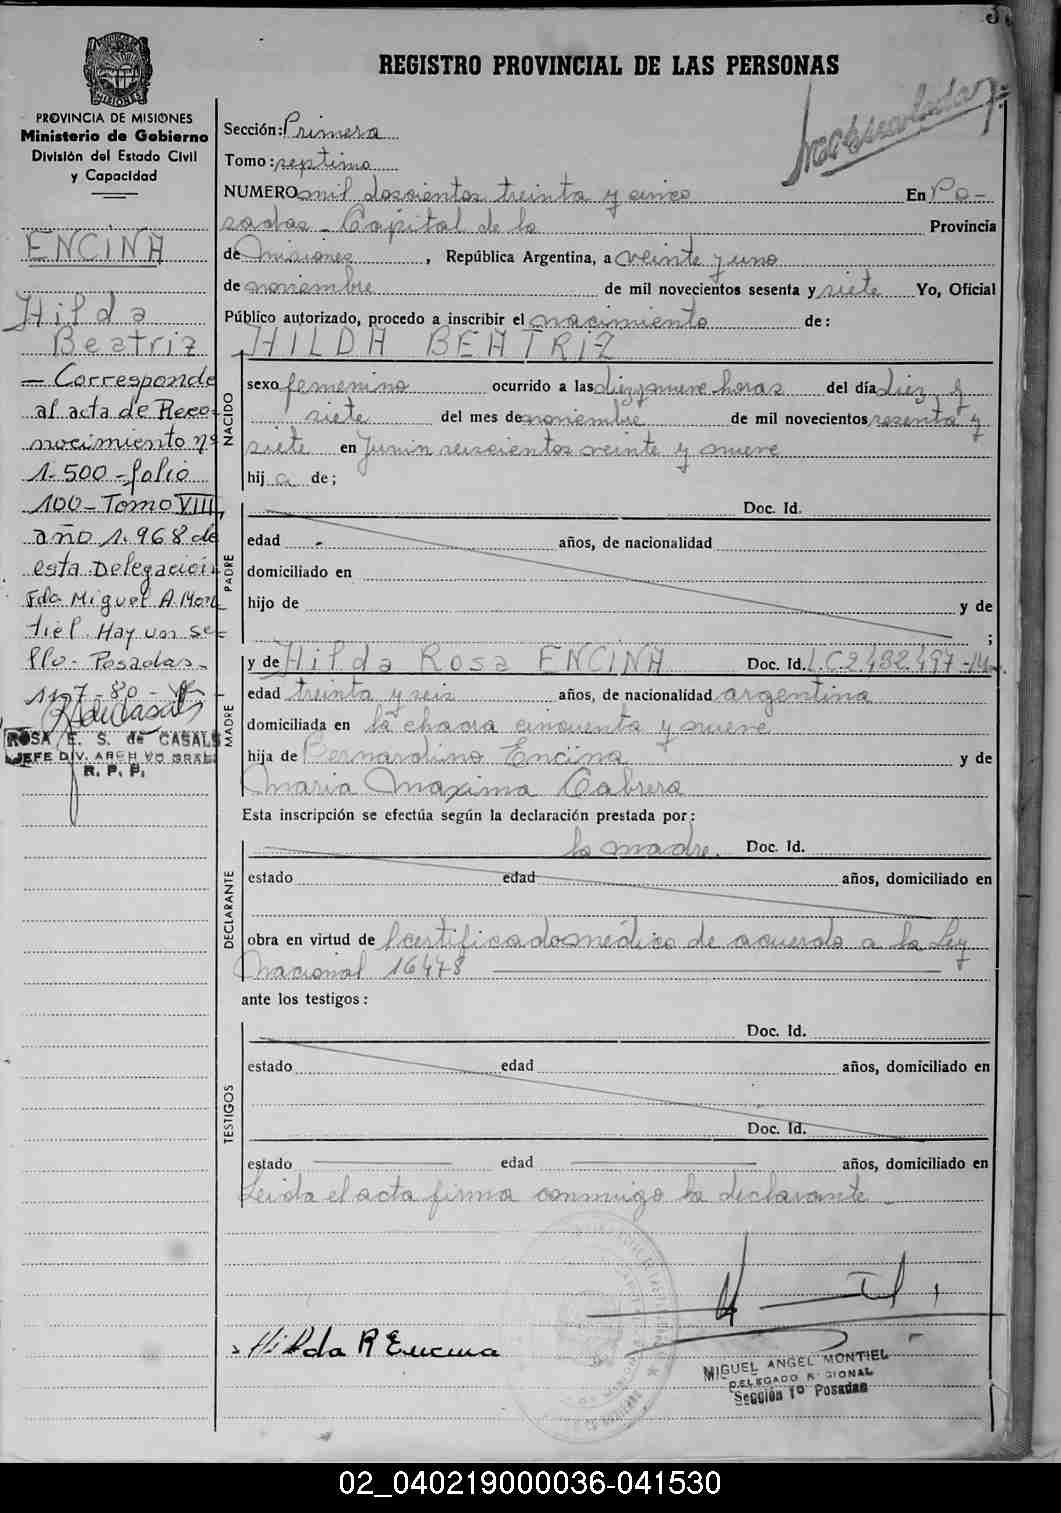 REGISTRO PROVINCIAL DE LAS PERSONAS
PROVINCIA DE MISIONES
Ministerio de Gobierno
División del Estado Civil
y Capacidad
ENCINA
Hilda
Beatriz
— Corresponde
al acta de Reco-
nocimiento nº
1.500 - folio
100 - Tomo VIII,
año 1.968 de
esta Delegación
Fdo Miguel A. Mon
tiel. Hay un se-
llo - Posadas -
ROSA E. S. de CASALS
JEFE DIV. ARCHIVO GRAL
R. P. P.
Sección: Primera
Tomo: septimo
NUMERO mil doscientos treinta y cinco En Po-
sadas - Capital de la Provincia
de Misiones, República Argentina, a veinte y uno
de noviembre de mil novecientos sesenta y siete Yo, Oficial
Público autorizado, procedo a inscribir el nacimiento de:
HILDA BEATRIZ
NACIDO
sexo femenino ocurrido a las diezynueve horas del día diez y
siete del mes de noviembre de mil novecientos sesenta y
siete en Junin seiscientos veinte y nueve
hij a de;
PADRE
Doc. Id.
edad - años, de nacionalidad
domiciliado en
hijo de y de
;
MADRE
y de Hilda Rosa ENCINA Doc. Id. L.C. 2.432.497 -
edad treinta y seis años, de nacionalidad argentina
domiciliada en la chacra cincuenta y nueve
hija de Bernardino Encina y de
Maria Maxima Cabrera
Esta inscripción se efectúa según la declaración prestada por:
DECLARANTE
la madre. Doc. Id.
estado edad años, domiciliado en
obra en virtud de certificado médico de acuerdo a la Ley
Nacional 16478
ante los testigos:
TESTIGOS
Doc. Id.
estado edad años, domiciliado en
Doc. Id.
estado edad años, domiciliado en
Leida el acta firma conmigo la declarante
Hilda R Encina
MIGUEL ANGEL MONTIEL
DELEGADO REGIONAL
Sección 1º Posadas
02_040219000036-041530